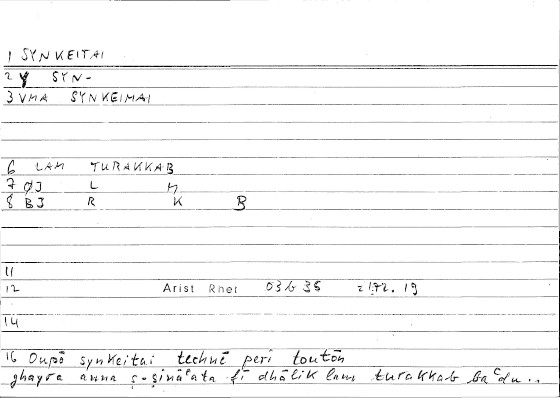 1 SYNKEITAI
2 Y SYN-
3 VMA SYNKEIMAI
6 LAM TURAKKAB
7 ØJ L M
8 BJ R K B
11
12 Arist Rhet 03b35 = 172.19
14
16 Oupō synkeitai technē peri toutōn
ghayra anna ṣ-ṣināʿata fī dhālik lam turakkab baʿdu..